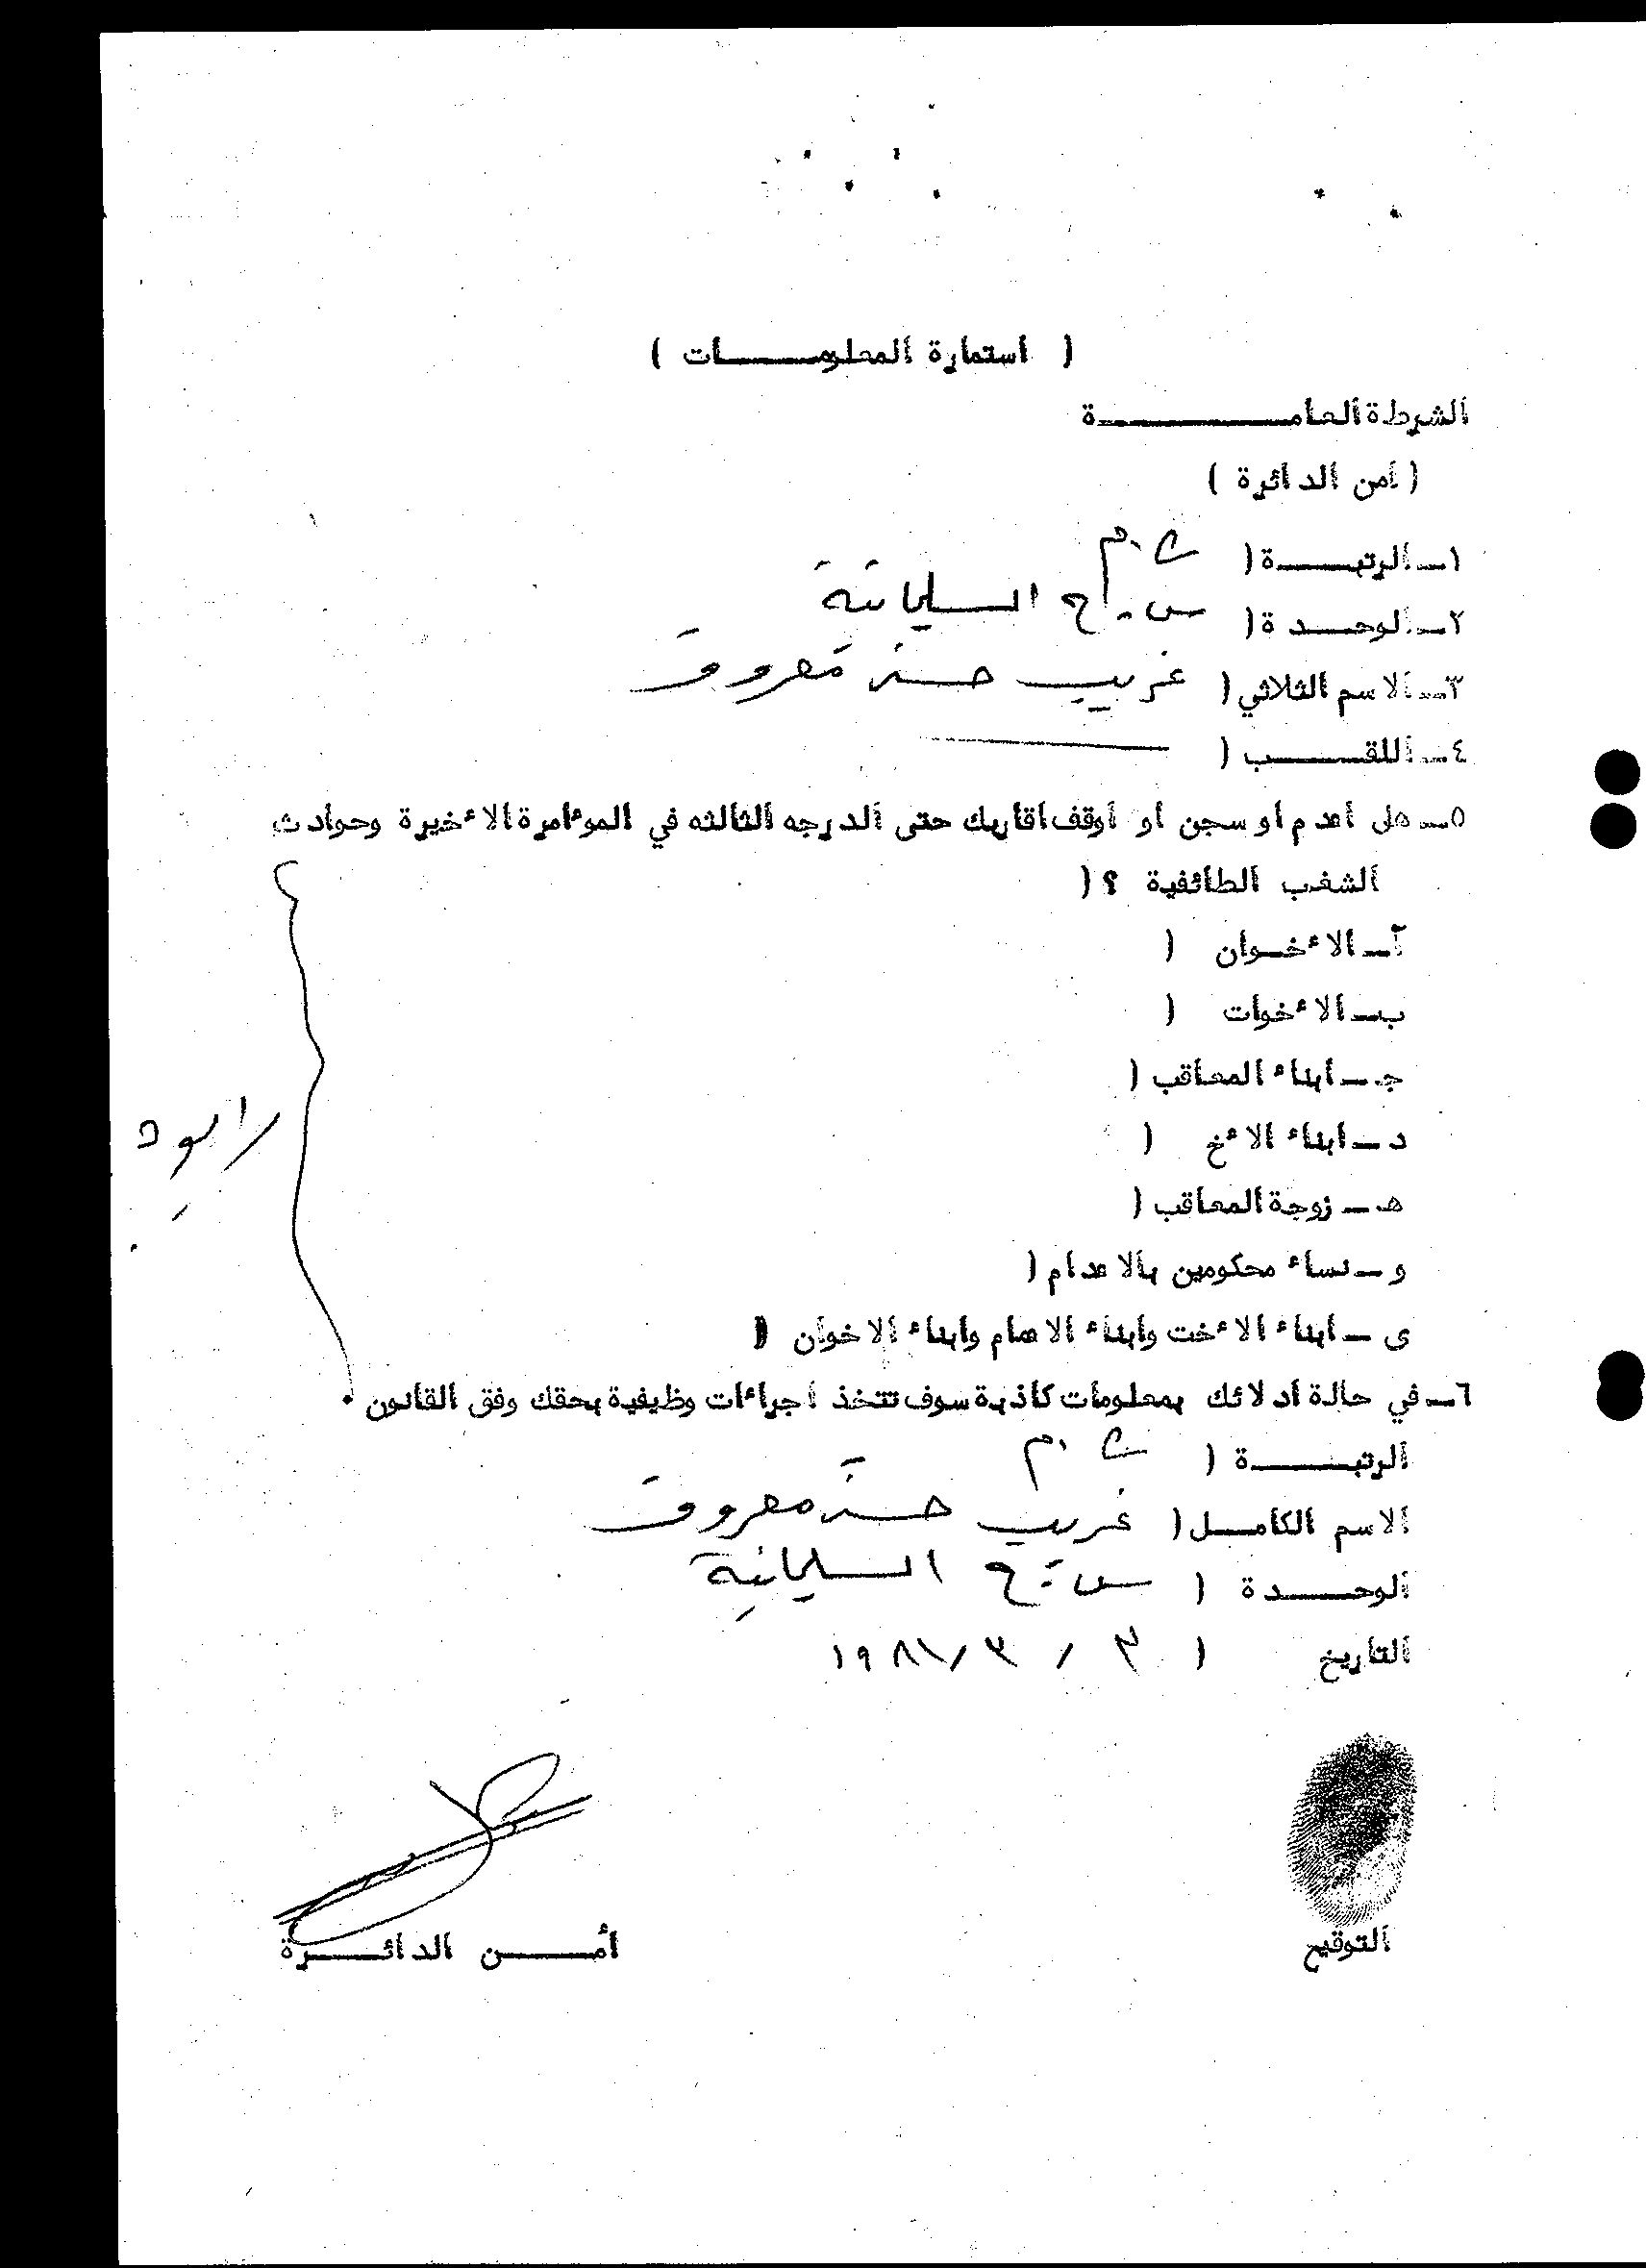 ( أستمارة المعلومـــات )
الشرطة العامـــة
( أمن الدائرة )
١ـ الرتبـــة ( ش.م
٢ـ الوحـــدة ( س. ح السليمانية
٣ـ الاسم الثلاثي ( غريب حسن معروف
٤ـ اللقـــب (
٥ـ هل أعدم أو سجن أو أوقف أقاربك حتى الدرجه الثالثه في الموءامرة الاءخيرة وحوادث
الشغب الطائفية ؟ (
آـ الاءخـوان (
بـ الاءخوات (
جـ ـ أبناء المعاقب (
د ـ أبناء الاءخ (
هـ ـ زوجة المعاقب (
و ـ نساء محكومين بالاعدام (
ى ـ أبناء الاءخت وأبناء الاعمام وأبناء الاخوان (
٦ـ في حالة أدلائك بمعلومات كاذبة سوف تتخذ أجراءات وظيفية بحقك وفق القانون .
الرتبـــة ( ش.م
الاسم الكامـــل ( غريب حسن معروف
الوحـــدة ( س. ح السليمانية
التأريخ ( ٣ / ٣ / ١٩٨١
التوقيع
أمـــن الدائـــرة